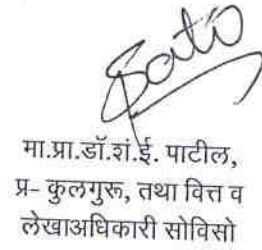 मा.प्रा.डॉ.शं.ई. पाटील,
प्र- कुलगुरू, तथा वित्त व
लेखाअधिकारी सोविसो